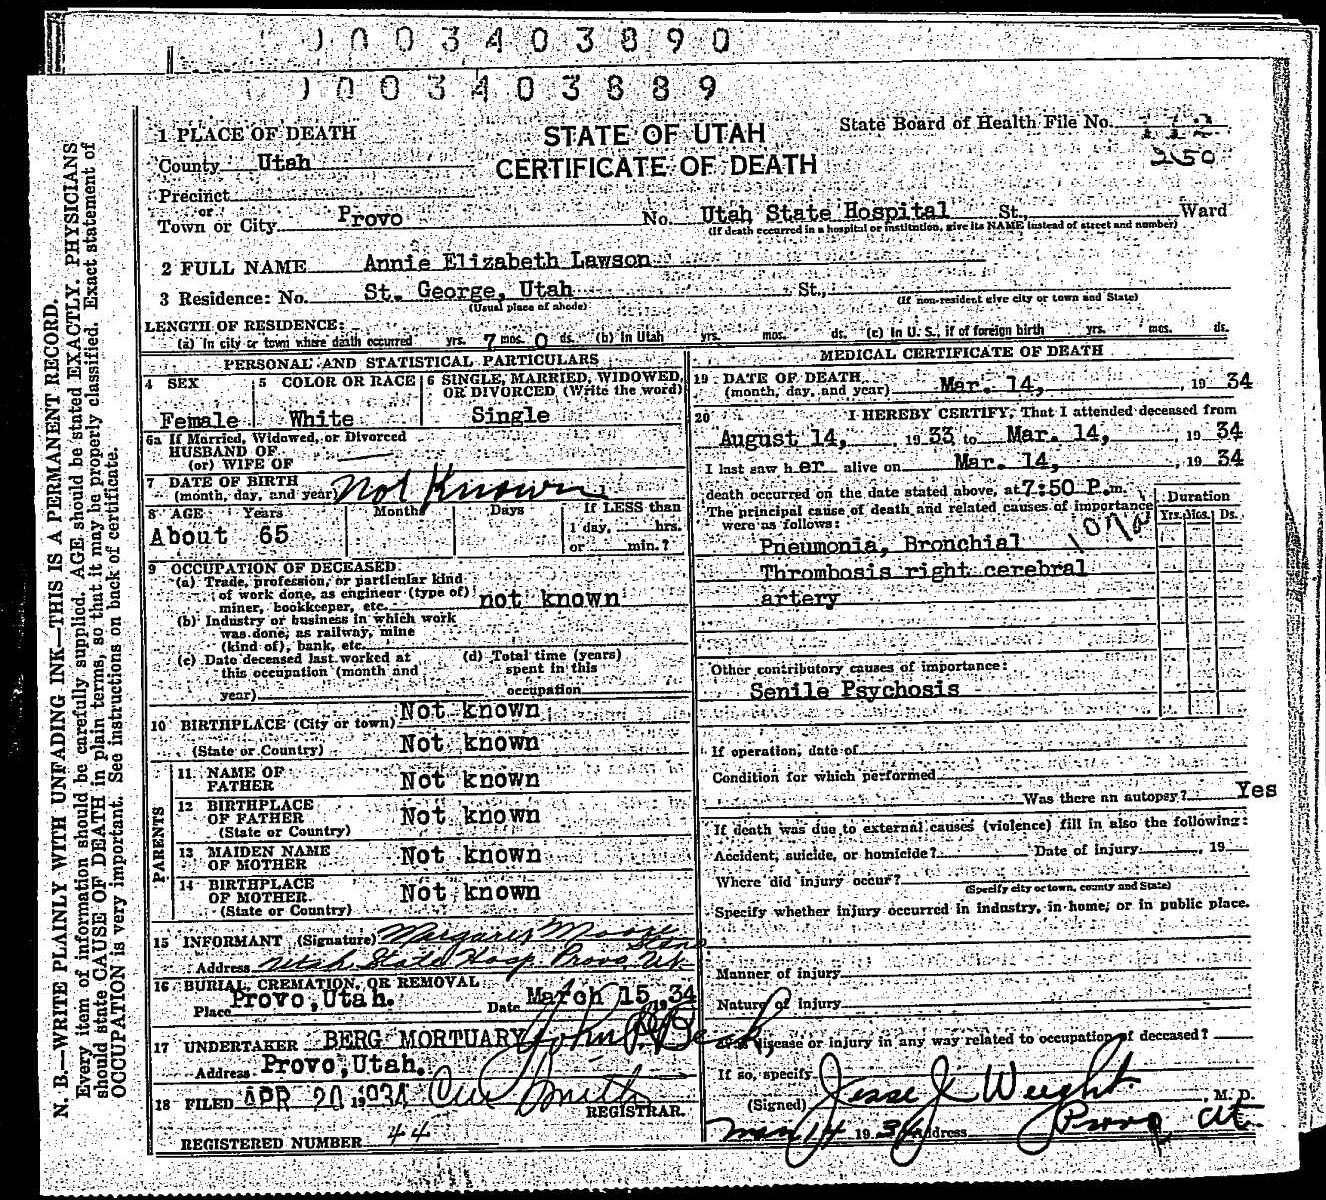 0003403890
0003403889
1 PLACE OF DEATH
STATE OF UTAH
CERTIFICATE OF DEATH
State Board of Health File No.
250
County Utah
Precinct
or
Town or City Provo No. Utah State Hospital St., Ward
(If death occurred in a hospital or institution, give its NAME instead of street and number)
2 FULL NAME Annie Elizabeth Lawson
3 Residence: No. St. George, Utah St.,
(Usual place of abode) (If non-resident give city or town and State)
LENGTH OF RESIDENCE:
(a) In city or town where death occurred yrs. 7 mos. 0 ds. (b) In Utah yrs. mos. ds. (c) In U. S., if of foreign birth yrs. mos. ds.
PERSONAL AND STATISTICAL PARTICULARS
4 SEX 5 COLOR OR RACE 6 SINGLE, MARRIED, WIDOWED, OR DIVORCED (Write the word)
Female White Single
6a If Married, Widowed, or Divorced
HUSBAND OF
(or) WIFE OF
7 DATE OF BIRTH
(month, day, and year) Not Known
8 AGE Years Months Days If LESS than
1 day, hrs.
or min.?
About 65
9 OCCUPATION OF DECEASED
(a) Trade, profession, or particular kind
of work done, as engineer (type of)
miner, bookkeeper, etc. not known
(b) Industry or business in which work
was done, as railway, mine
(kind of), bank, etc.
(c) Date deceased last worked at
this occupation (month and
year)
(d) Total time (years)
spent in this
occupation
10 BIRTHPLACE (City or town) Not known
(State or Country) Not known
PARENTS
11 NAME OF
FATHER Not known
12 BIRTHPLACE
OF FATHER Not known
(State or Country)
13 MAIDEN NAME
OF MOTHER Not known
14 BIRTHPLACE
OF MOTHER Not known
(State or Country)
15 INFORMANT (Signature) Margaret Moore
Address Utah State Hosp Provo, Ut.
16 BURIAL, CREMATION, OR REMOVAL
Place Provo, Utah. Date March 15, 1934
17 UNDERTAKER BERG MORTUARY John P Beck,
Address Provo, Utah.
18 FILED APR 20 1934
REGISTRAR.
REGISTERED NUMBER 44
MEDICAL CERTIFICATE OF DEATH
19 DATE OF DEATH
(month, day, and year) Mar. 14, 1934
20 I HEREBY CERTIFY, That I attended deceased from
August 14, 1933 to Mar. 14, 1934
I last saw her alive on Mar. 14, 1934
death occurred on the date stated above, at 7:50 P.m.
The principal cause of death and related causes of importance
were as follows:
Duration
Yrs. Mos. Ds.
Pneumonia, Bronchial
Thrombosis right cerebral
artery
Other contributory causes of importance:
Senile Psychosis
If operation, date of
Condition for which performed
Was there an autopsy? Yes
If death was due to external causes (violence) fill in also the following:
Accident, suicide, or homicide? Date of injury , 19
Where did injury occur?
(Specify city or town, county and State)
Specify whether injury occurred in industry, in home, or in public place.
Manner of injury
Nature of injury
disease or injury in any way related to occupation of deceased?
If so, specify
(Signed) Jesse J Weight, M. D.
Mar 14 1934 Address Provo Ut.
N. B.—WRITE PLAINLY WITH UNFADING INK—THIS IS A PERMANENT RECORD.
Every item of information should be carefully supplied. AGE should be stated EXACTLY. PHYSICIANS
should state CAUSE OF DEATH in plain terms, so that it may be properly classified. Exact statement of
OCCUPATION is very important. See instructions on back of certificate.